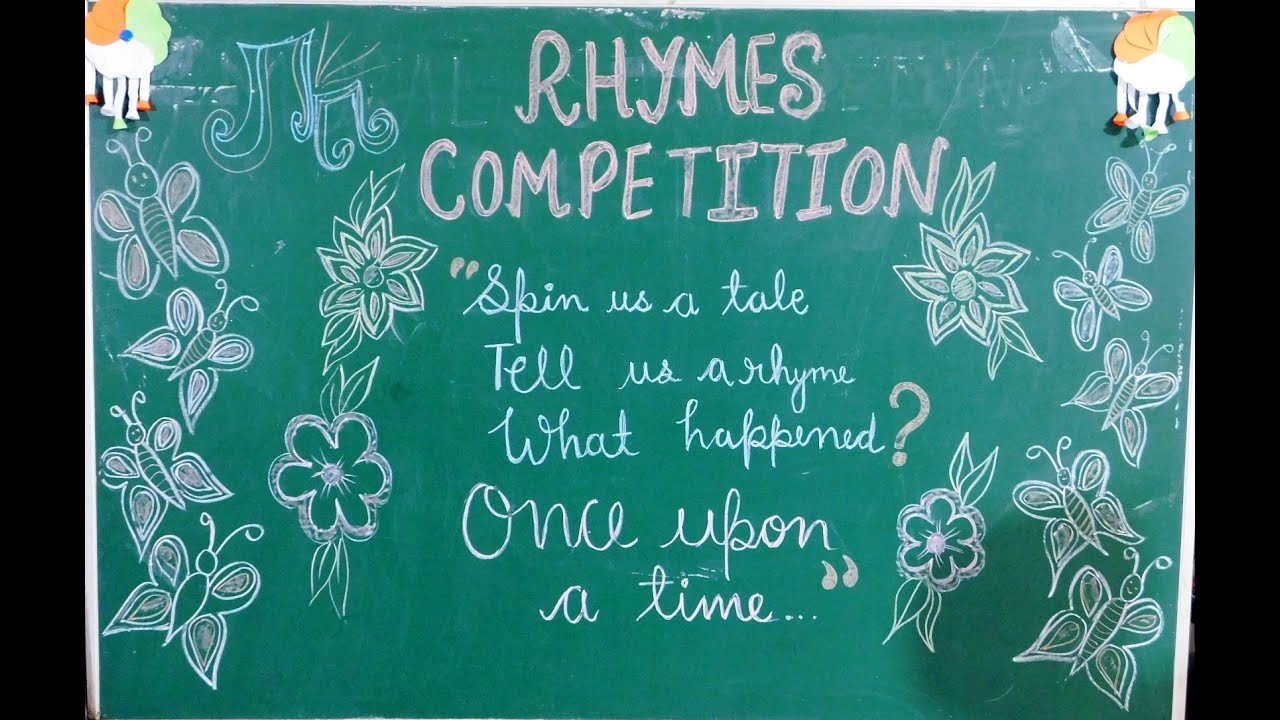 RHYMES
COMPETITION
"Spin us a tale
Tell us a rhyme
What happened?
Once upon
a time..."